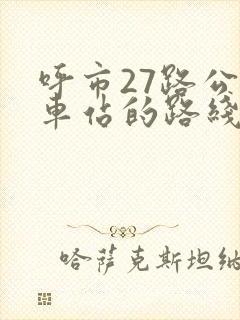 呼市27路公
车估的路线
哈萨克斯坦纳